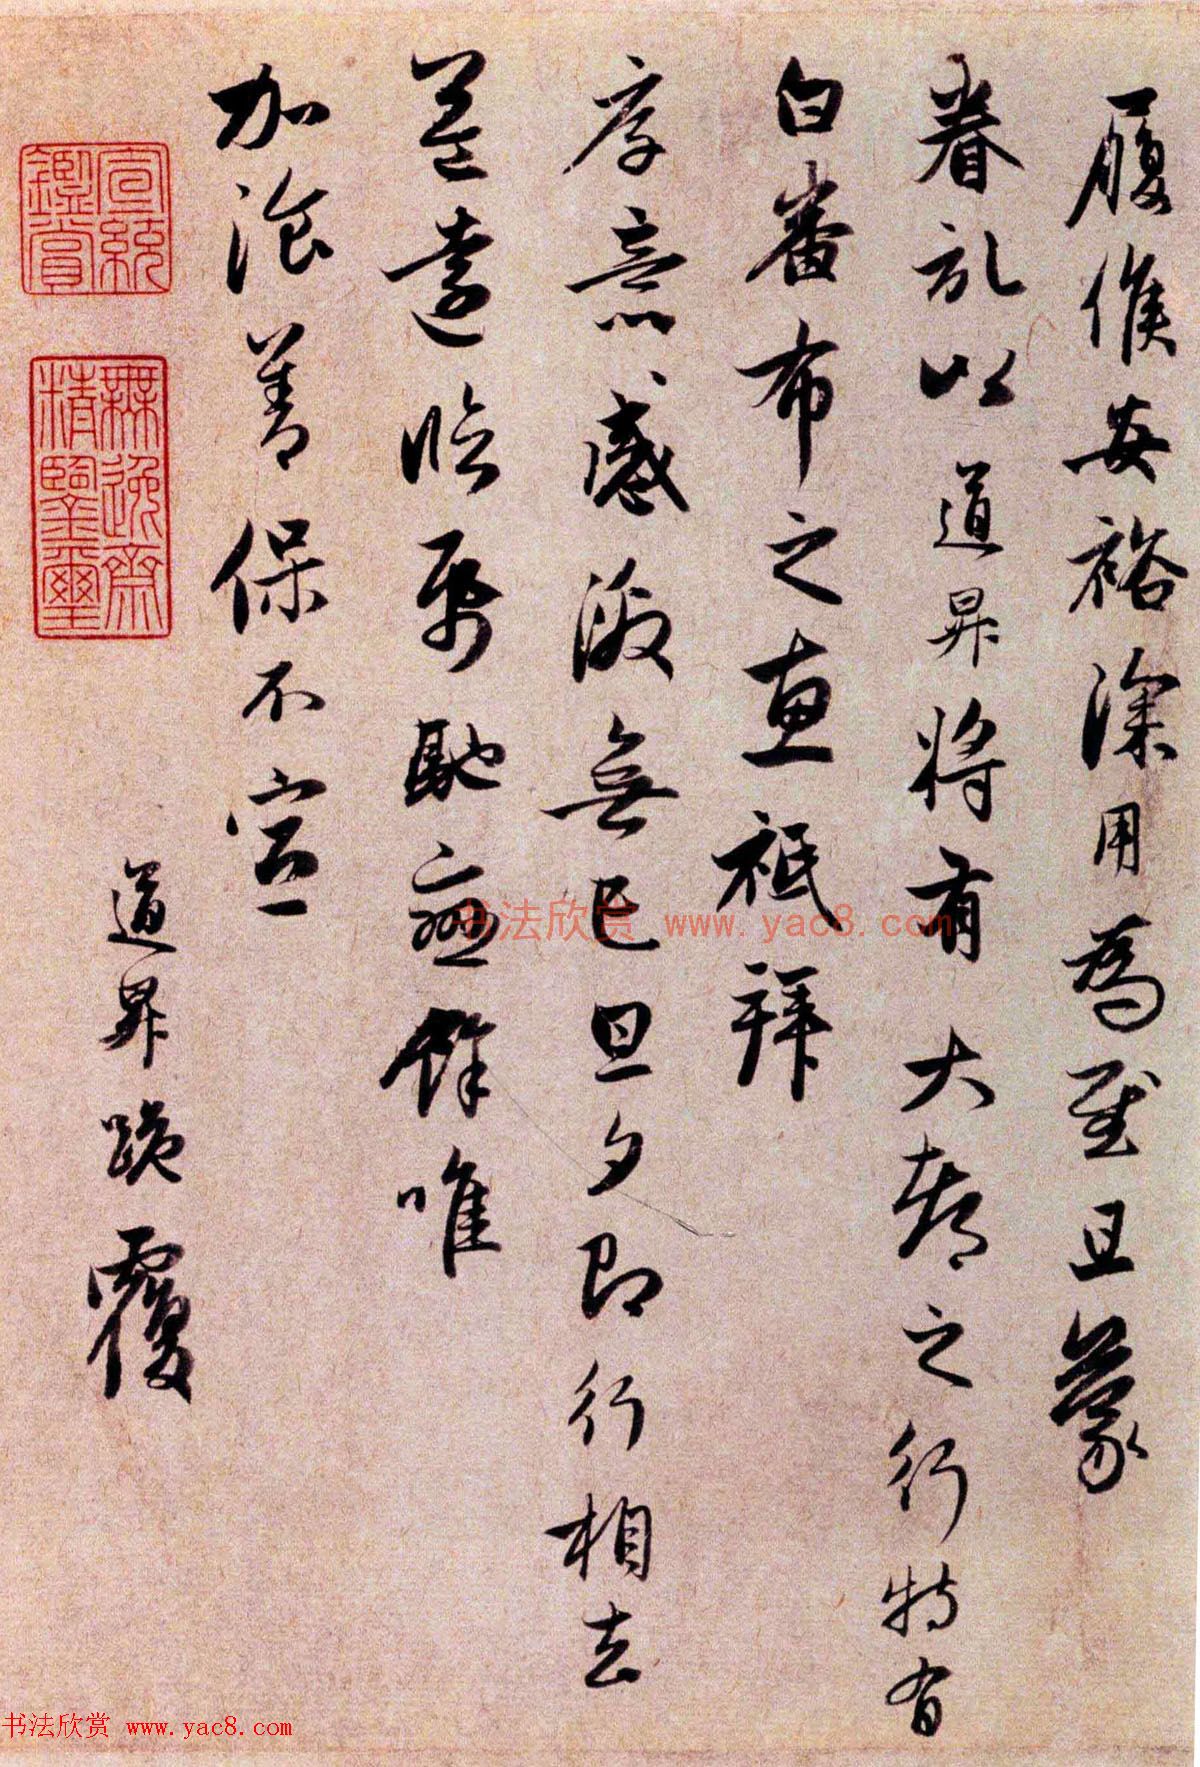 履候安裕深用為慰且蒙
眷記以道昇將有大都之行特有
白番布之惠祗拜
厚意感激無已旦夕即行相去
益遠臨紙馳戀餘唯
加飡善保不宣
道昇跪覆
宣統鑑賞
無逸齋精鑒璽
书法欣赏 www.yac8.com
书法欣赏 www.yac8.com